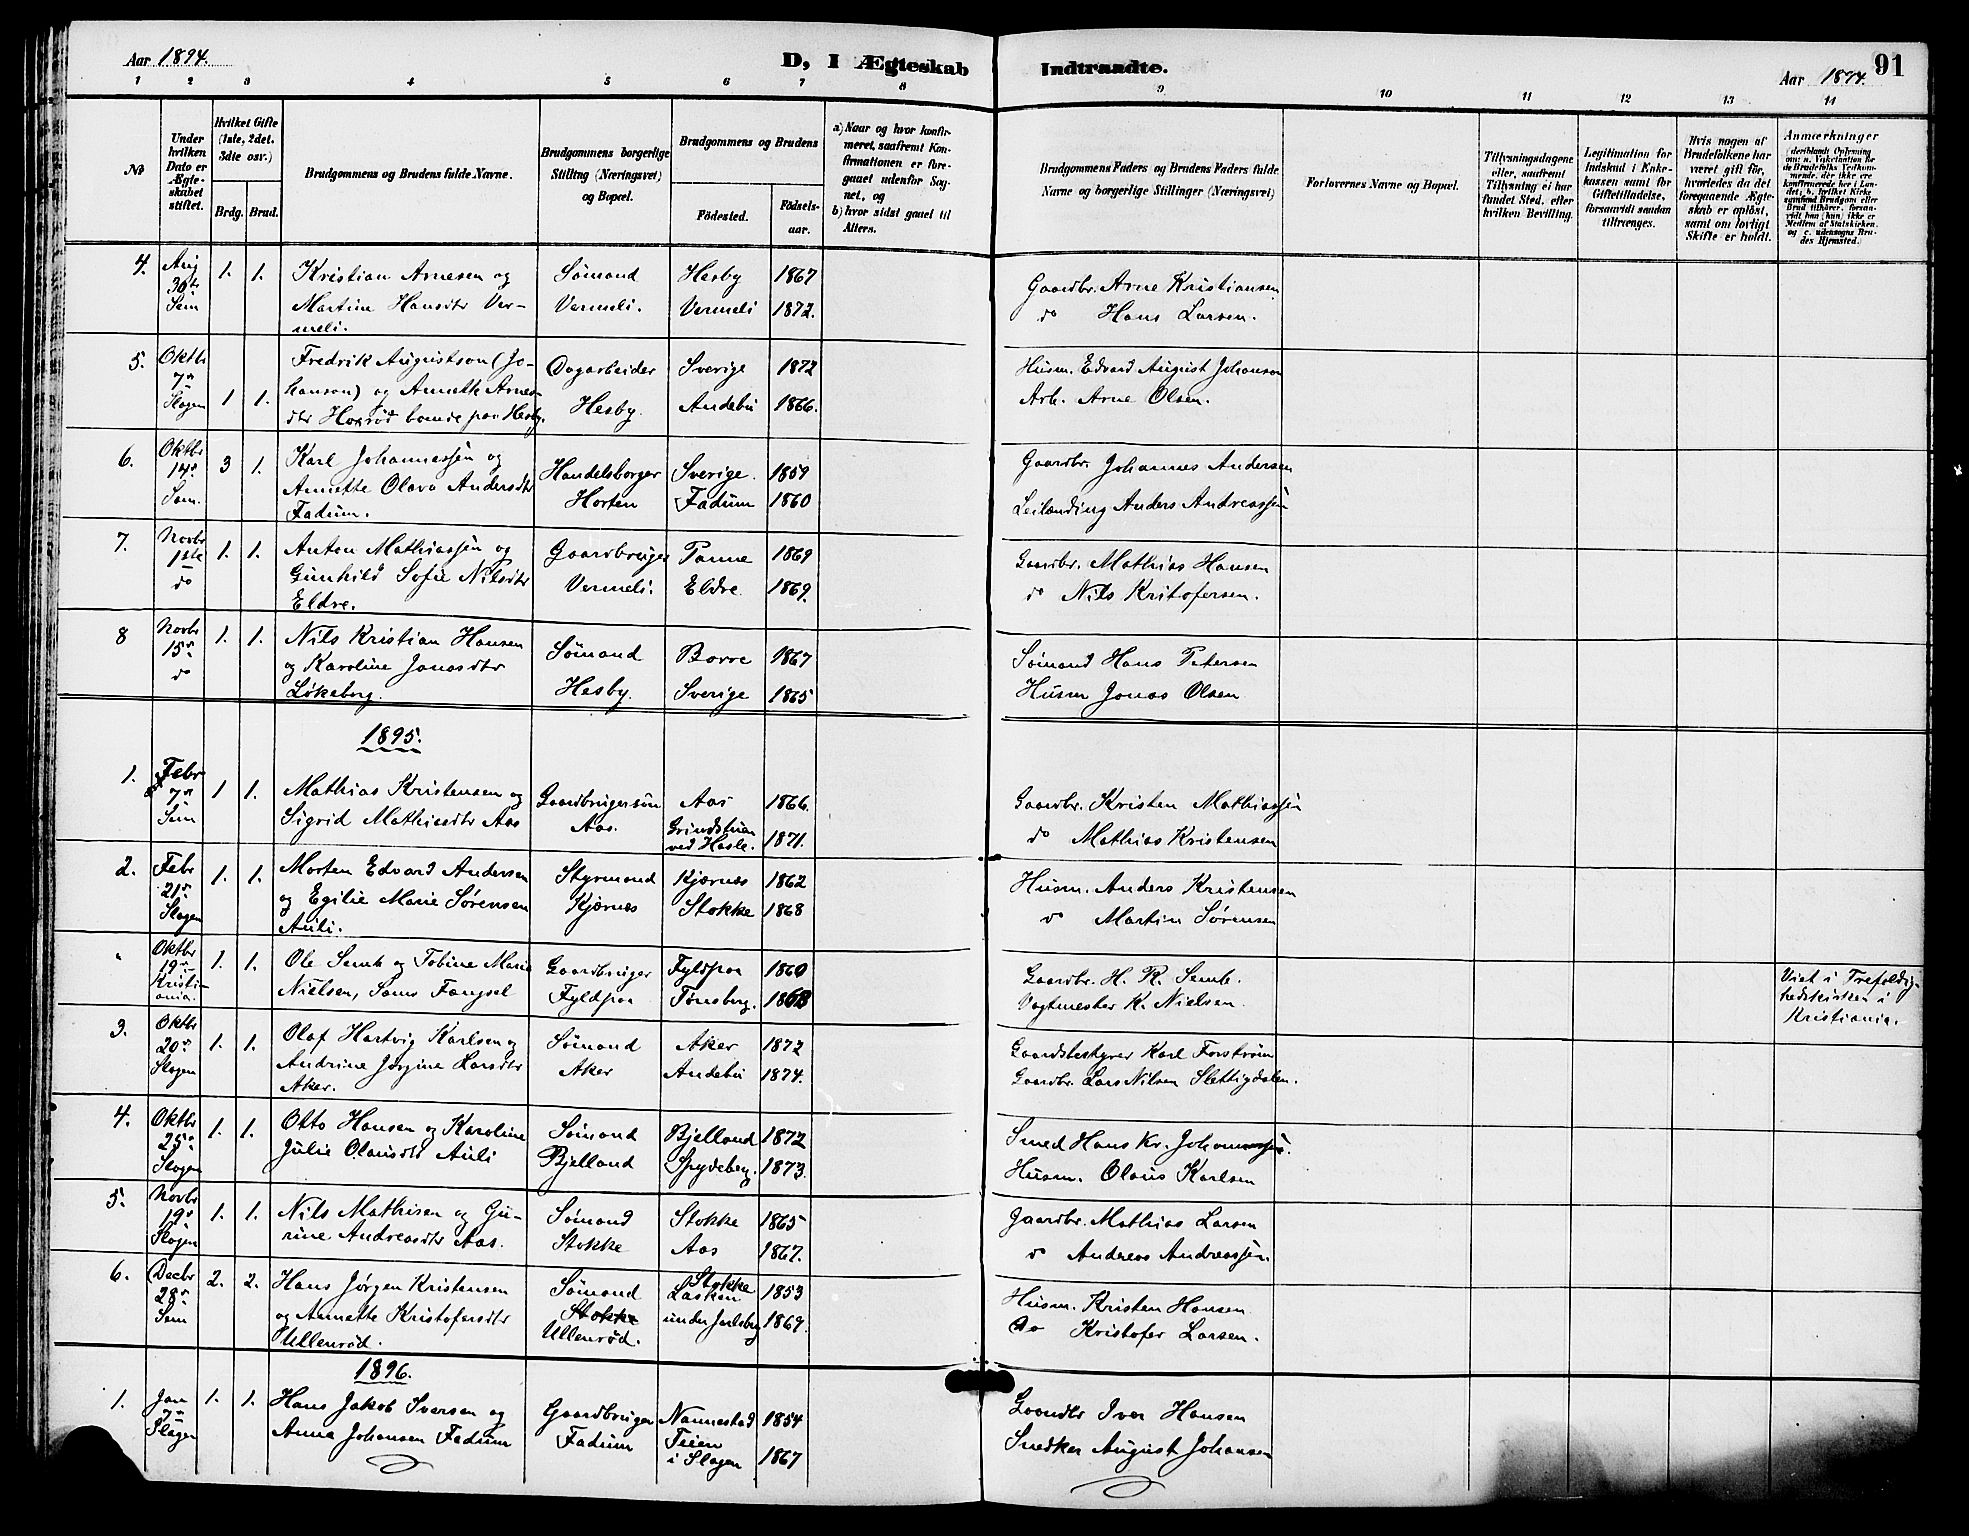 Aar 1894.
D, I Ægteskab Indtraadte.
Aar 1894.
91
1 2 3 4 5 6 7 8 9 10 11 12 13 14
№
Under hvilken Dato er Ægteskabet stiftet.
Hvilket Gifte (1ste, 2det, 3die osv.)
Brdg. Brud.
Brudgommens og Brudens fulde Navne.
Brudgommens borgerlige Stilling (Næringsvei) og Bopæl.
Brudgommens og Brudens
Fødested.
Fødselsaar.
a) Naar og hvor konfirmeret, saafremt Konfirmationen er foregaaet udenfor Sognet, og
b) hvor sidst gaaet til Alters.
Brudgommens Faders og Brudens Faders fulde Navne og borgerlige Stillinger (Næringsvei)
Forlovernes Navne og Bopæl.
Tillysningsdagene eller, saafremt Tillysning ei har fundet Sted, efter hvilken Bevilling.
Legitimation for Indskud i Enkekassen samt for Giftetilladelse, forsaavidt saadan tiltrænges.
Hvis nogen af Brudefolkene har været gift før, hvorledes da det foregaaende Ægteskab er opløst, samt om lovligt Skifte er holdt.
Anmærkninger
4. Aug 30te Sem 1. 1. Kristian Arnesen og Sømand Hesby 1867 Gaardbr. Arne Kristiansen
Martine Hansdtr Ver- Vermeli. Vermeli 1872. do Hans Larsen.
meli.
5. Oktbr 7de Slagen 1 1. Fredrik Augustson (Jo- Dagarbeider Sverige 1872 Husm. Edvard August Johanson
hanson) og Annette Arnes- Hesby. Andebu 1866. Arb. Arne Olsen.
dtr Horrød boende paa Hesby.
6. Oktbr 14de Sem. 3 1. Karl Johannessen og Handelsborger Sverige. 1859 Gaardbr. Johannes Andersen
Annette Olava Andersdtr Horten Fadum 1860 Leilænding Anders Andreassen
Fadum.
7. Novbr 1ste do 1. 1. Anton Mathiassen og Gaardbruger Tanne 1869 Gaardbr. Mathias Hansen
Gunhild Sofie Nilsdtr Vermeli. Eldre. 1869. do Nils Kristofersen.
Eldre.
8 Novbr 15de do 1. 1. Nils Kristian Hansen Sømand Borre 1867 Sømand Hans Petersen
og Karoline Jonasdtr Hesby. Sverige 1865 Husm Jonas Olsen
Løkeberg.
1895.
1. Febr 7de Sem 1 1. Mathias Kristensen og Gaardbrugersøn Aas 1866. Gaardbr. Kristen Mathiassen
Sigrid Mathisdtr Aas Aas. Grindstuen ved Hasle. 1871. do Mathias Kristensen
2. Febr 21de Slagen 1. 1. Morten Edvard Andersen Styrmand Kjærnes 1862 Husm. Anders Kristensen
og Egilie Marie Sørensen Kjærnes Stokke 1868 do Martin Sørensen
Auli.
" Oktbr 19de Kristiania. 1. 1. Ole Semb og Tobine Marie Gaardbruger Fyldpaa 1860 Gaardbr. H. R. Semb.
Nielsen, Sems Fængsel Fyldpaa Tønsberg. 1868 Vagtmester K. Nielsen.
Viet i Trefoldig-
hedskirken i
Kristiania.
3. Oktbr 20de Slagen 1. 1. Olaf Hartvig Karlsen og Sømand Aker 1872 Gaardsbestyrer Karl Forstrøm
Andrine Jørgine Larsdtr Aker Andebu 1874. Gaardbr. Lars Nilsen Slettigdalen.
Aker.
4. Oktbr 25de Slagen 1. 1. Otto Hansen og Karoline Sømand Bjelland 1872 Smed Hans Kr. Johannessen.
Julie Olausdtr Auli Bjelland Spydeberg. 1873. Husm. Olaus Karlsen
5. Novbr 19de Slagen 1. 1. Nils Mathisen og Gu- Sømand Stokke 1865 Gaardbr. Mathias Larsen
rine Andreasdtr Aas. Stokke Aas 1867. do Andreas Andreassen
6. Decbr 28de Sem 2. 2. Hans Jørgen Kristensen Sømand Stokke 1853 Husm. Kristen Hansen
og Annette Kristofersdtr Stokke Ullenrød. Lasken under Jarlsberg 1869. do Kristofer Larsen.
Ullenrød.
1896.
1. Jan 7de Slagen 1. 1. Hans Jakob Iversen og Gaardbruger Nannestad 1854 Gaardbr Iver Hansen
Anna Johansen Fadum Fadum Teien i Slagen 1867 Snedker August Johansen